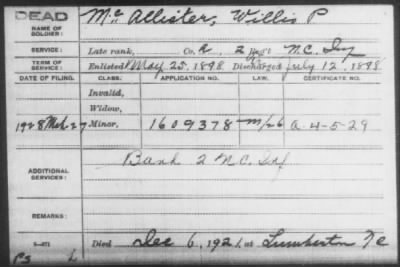 DEAD
NAME OF SOLDIER: McAllister, Willis P
SERVICE: Late rank, Co. A, 2 Reg't N.C. Inf
TERM OF SERVICE: Enlisted May 25, 1898 Discharged July 12, 1898
DATE OF FILING. CLASS. APPLICATION NO. LAW. CERTIFICATE NO.
Invalid,
Widow,
1928 Mch. 27 Minor, 1609378 a-4-5-29
ADDITIONAL SERVICES: Band 2 N.C. Inf
REMARKS:
Died Dec 6, 1921, at Lumberton N C